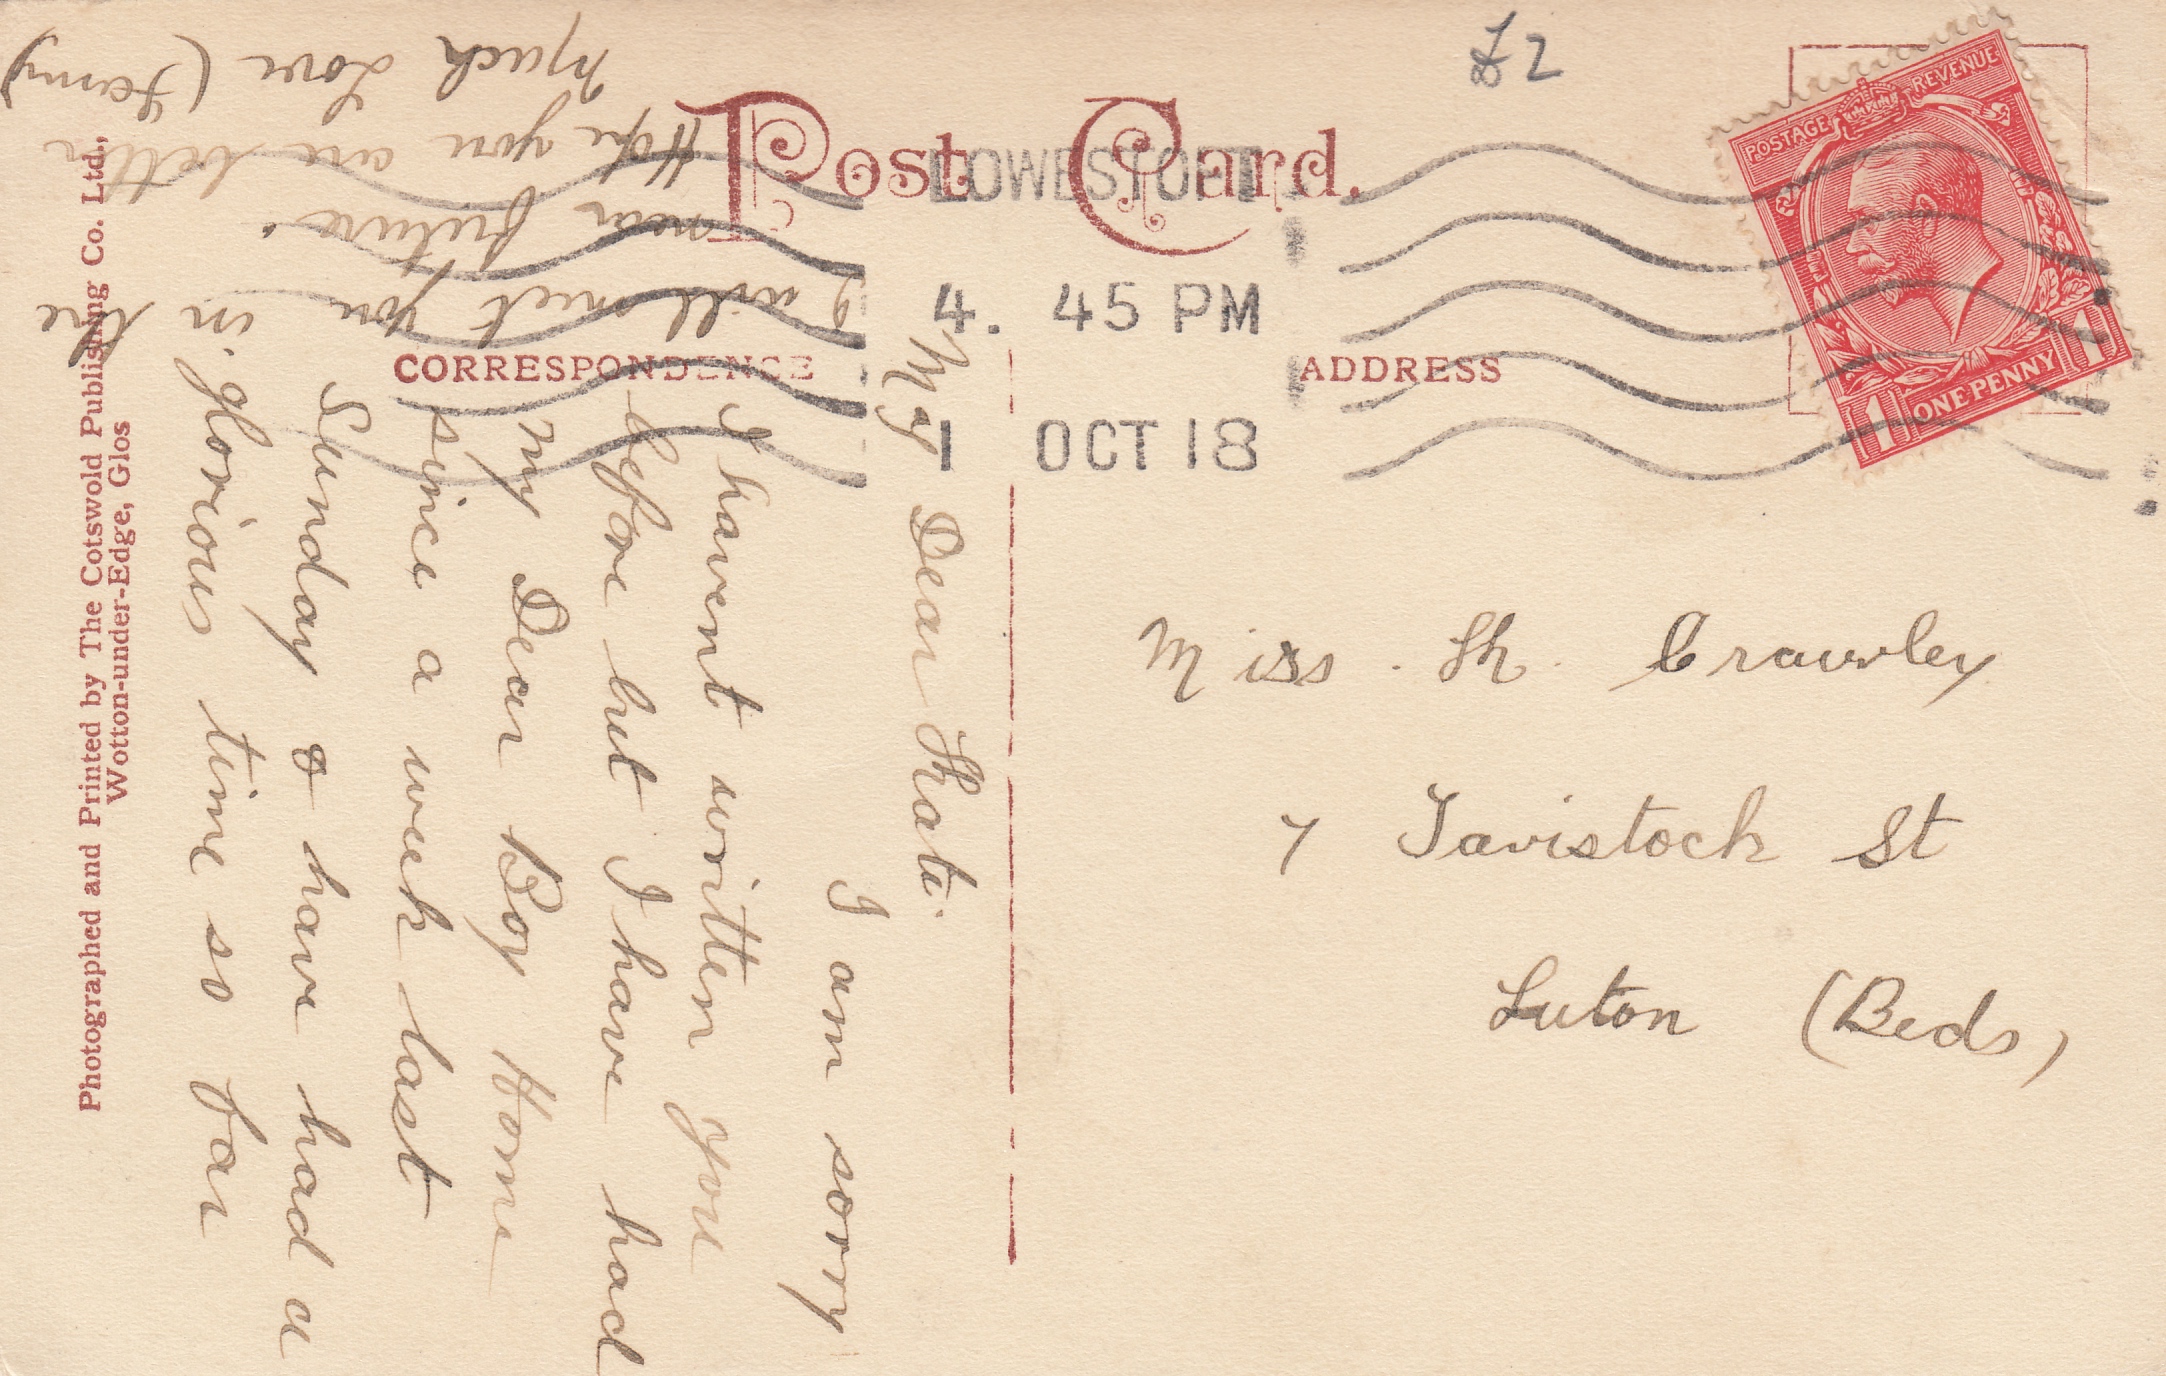 £2
Post Card.
POSTAGE REVENUE
1 ONE PENNY 1
LOWESTOFT
4. 45 PM
1 OCT 18
CORRESPONDENCE
ADDRESS
Miss. K. Crawley
7 Tavistock St
Luton (Beds)
My Dear Kate.
I am sorry
I havent written you
before but I have had
my Dear Boy Home
since a week last
Sunday & have had a
glorious time so far
I will meet you in the
near future.
Hope you are better
Much Love (Fanny)
Photographed and Printed by The Cotswold Publishing Co. Ltd.,
Wotton-under-Edge, Glos